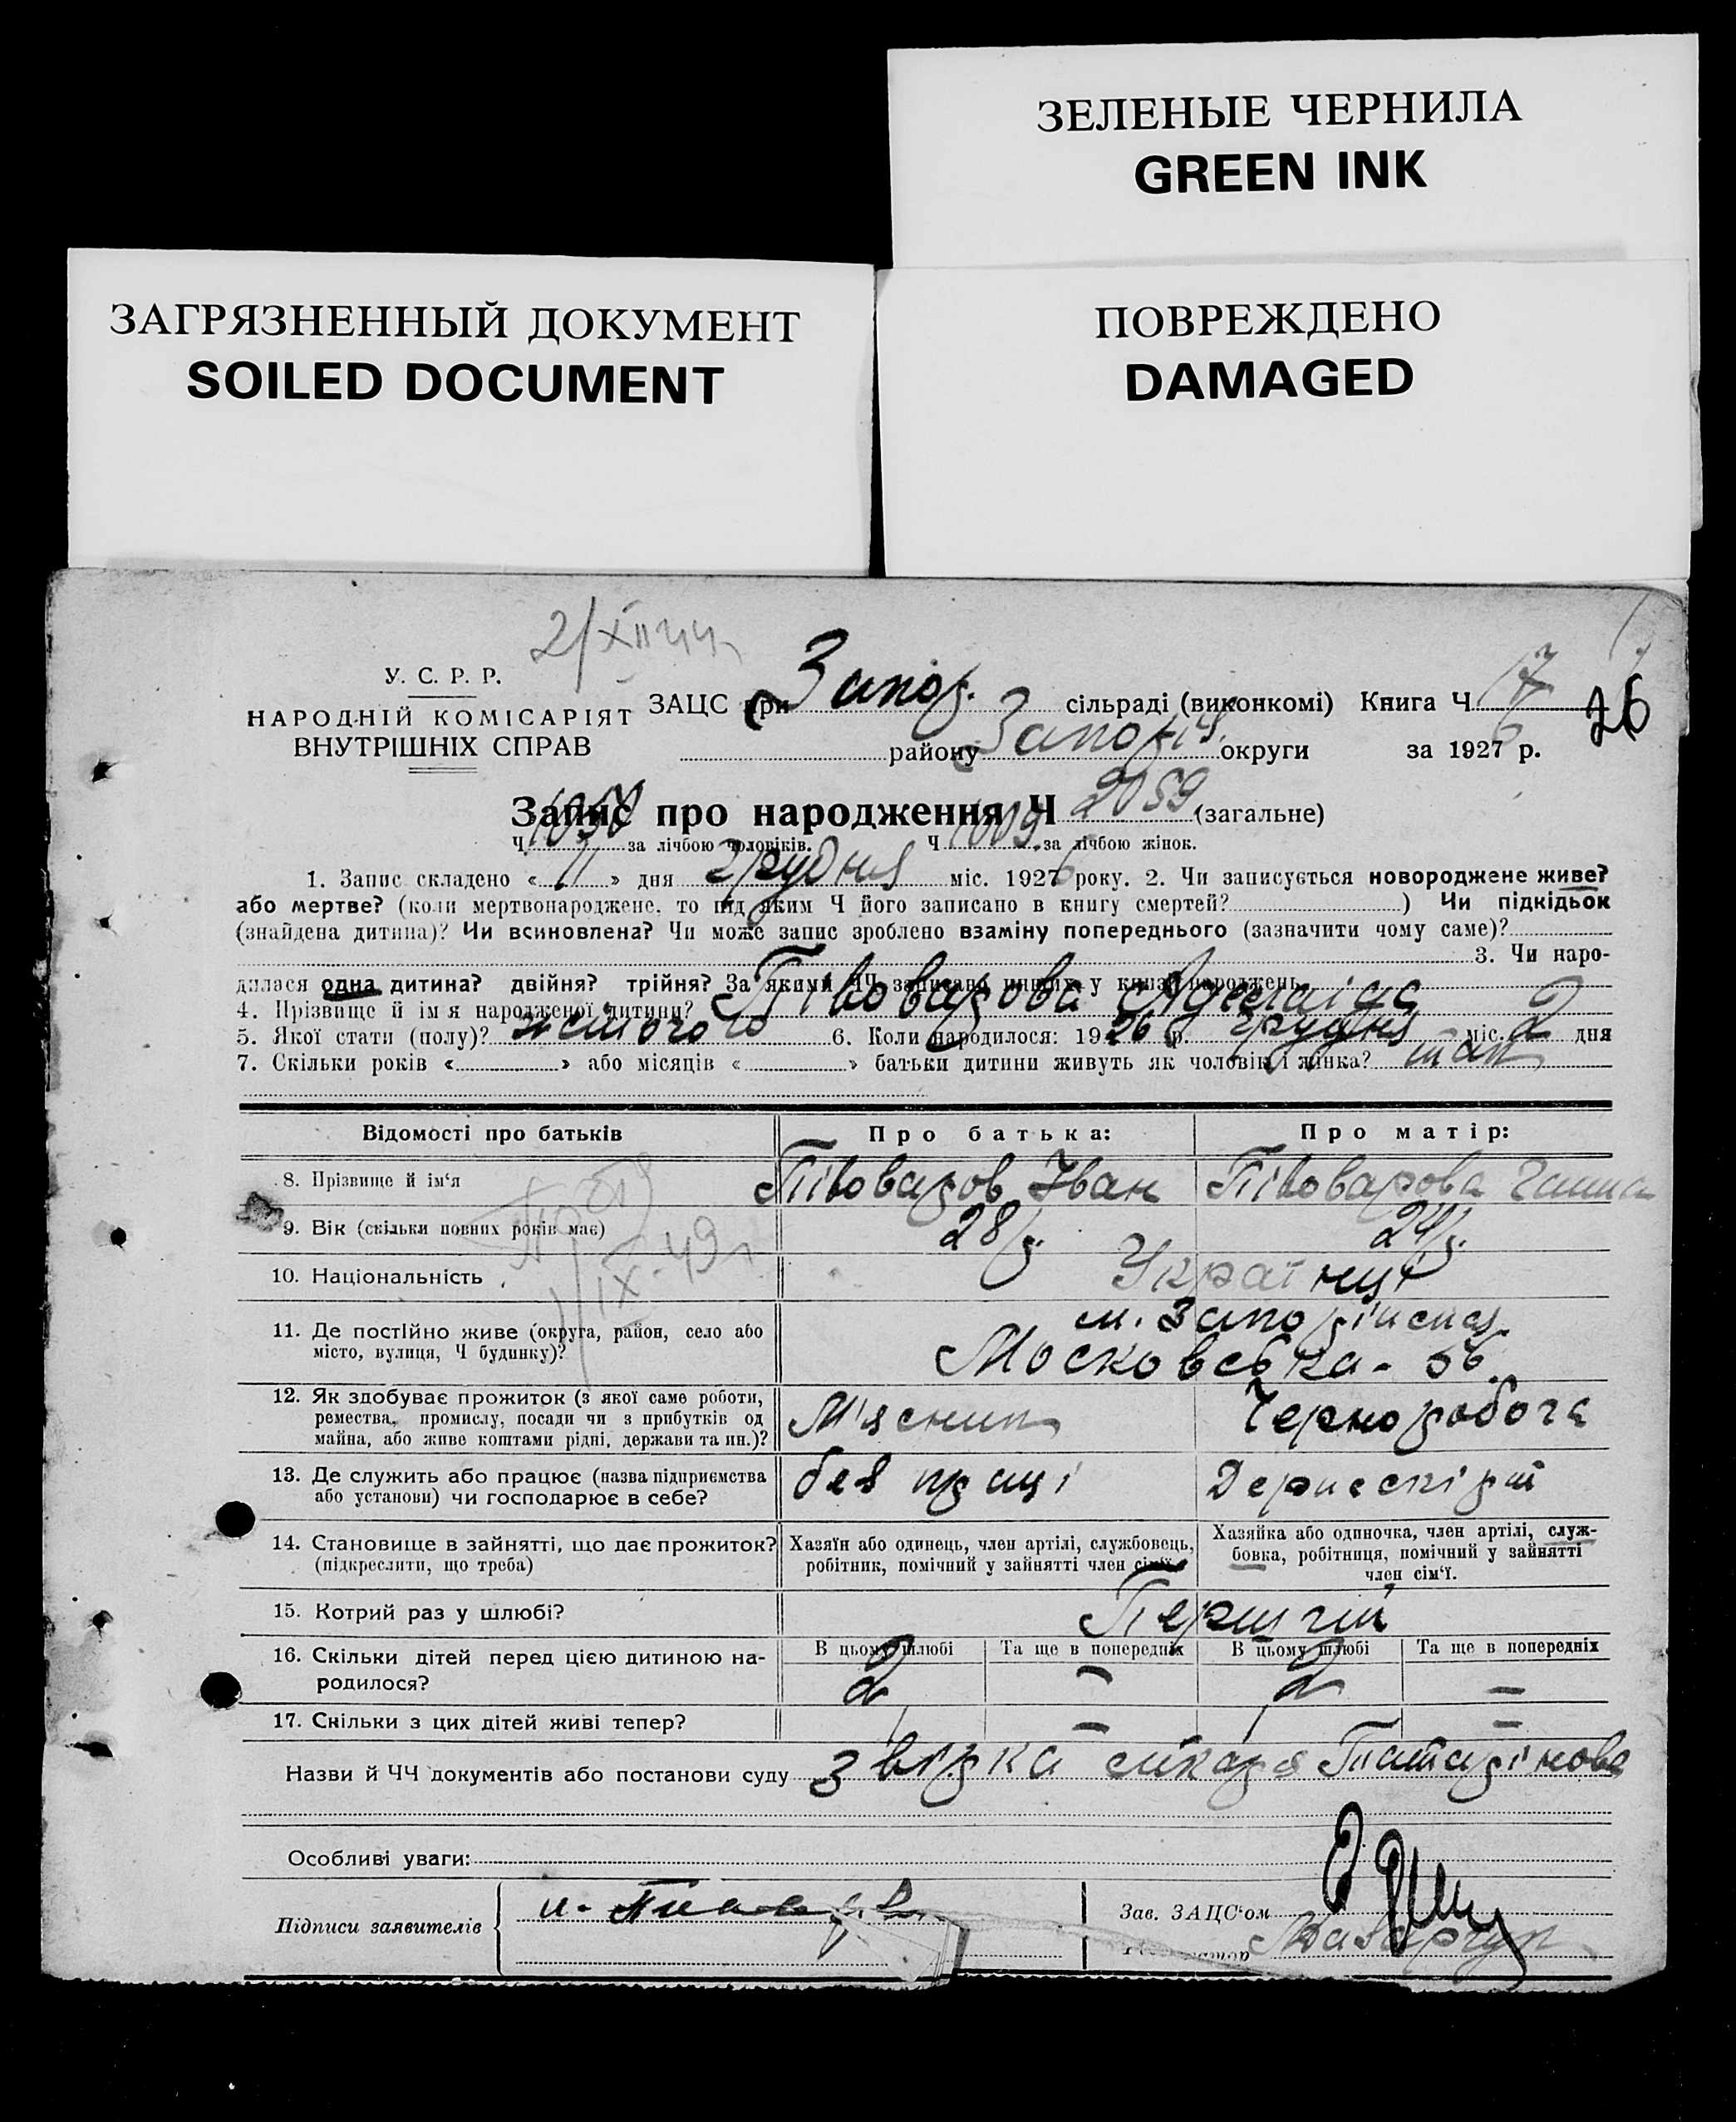 ЗЕЛЕНЫЕ ЧЕРНИЛА
GREEN INK
ЗАГРЯЗНЕННЫЙ ДОКУМЕНТ
SOILED DOCUMENT
ПОВРЕЖДЕНО
DAMAGED
2/XII 44
У. С. Р. Р.
НАРОДНІЙ КОМІСАРІЯТ
ВНУТРІШНІХ СПРАВ
ЗАЦС при Запор. сільраді (виконкомі) Книга Ч 17
26
району Запоріз. округи за 1927 6 р.
Запис про народження Ч 2059 (загальне)
Ч 1050 за лічбою чоловіків. Ч 1009 за лічбою жінок.
1. Запис складено « 11 » дня грудня міс. 1927 6 року. 2. Чи записується новороджене живе?
або мертве? (коли мертвонароджене, то під яким Ч його записано в книгу смертей? ) Чи підкідьок
(знайдена дитина)? Чи всиновлена? Чи може запис зроблено взаміну попереднього (зазначити чому саме)?
3. Чи наро-
дилася одна дитина? двійня? трійня? За якими ЧЧ записано инших у книзі народжень
4. Прізвище й ім'я народженої дитини? Півоварова Аделаіда
5. Якої стати (полу)? жіночого 6. Коли народилося: 1926 р. грудня міс. 2 дня
7. Скільки років « » або місяців « » батьки дитини живуть як чоловік і жінка? так
Відомості про батьків Про батька: Про матір:
8. Прізвище й ім'я Півоваров Іван Півоварова Ганна
9. Вік (скільки повних років має) 28 р. 24 р.
1/IX-49 г.
10. Національність Українці
11. Де постійно живе (округа, район, село або місто, вулиця, Ч будинку)? м. Запоріжжя
Московська - 56.
12. Як здобуває прожиток (з якої саме роботи, М'ясник Чорноробоча
ремества, промислу, посади чи з прибутків од
майна, або живе коштами рідні, держави та ин.)?
13. Де служить або працює (назва підприємства без праці
або установи) чи господарює в себе?
14. Становище в зайнятті, що дає прожиток? Хазяїн або одинець, член артілі, службовець, Хазяйка або одиночка, член артілі, служ-
(підкреслити, що треба) робітник, помічний у зайнятті член сім'ї. бовка, робітниця, помічний у зайнятті
член сім'ї.
15. Котрий раз у шлюбі? Перший
16. Скільки дітей перед цією дитиною на- В цьому шлюбі Та ще в попередніх В цьому шлюбі Та ще в попередніх
родилося? 2 – 2 –
17. Скільки з цих дітей живі тепер? 1 – 1 –
Назви й ЧЧ документів або постанови суду Звірка лікаря Татарінова
Особливі уваги:
Підписи заявителів
Зав. ЗАЦС'ом